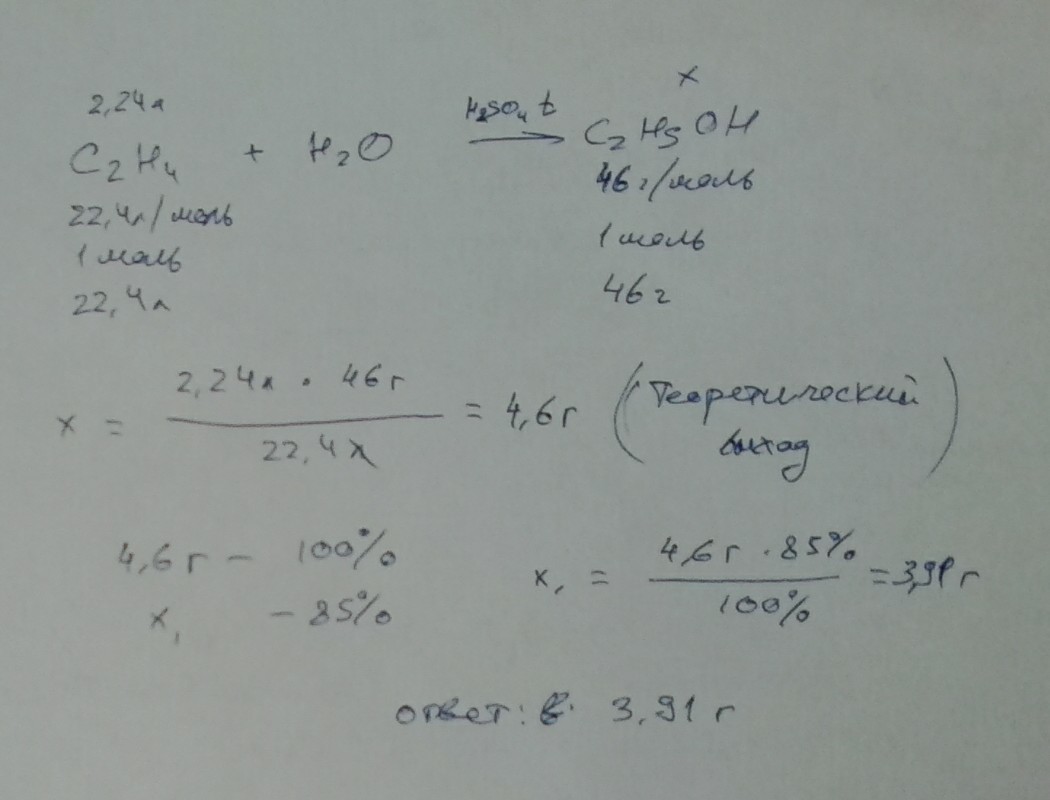 2,24л x
C2H4 + H2O H2SO4 t → C2H5OH
22,4л/моль 46 г/моль
1 моль 1 моль
22,4л 46 г
x = 2,24л · 46 г / 22,4л = 4,6 г (Теоретический выход)
4,6 г – 100%
x1 – 85%
x1 = 4,6 г · 85% / 100% = 3,91 г
ответ: в. 3,91 г